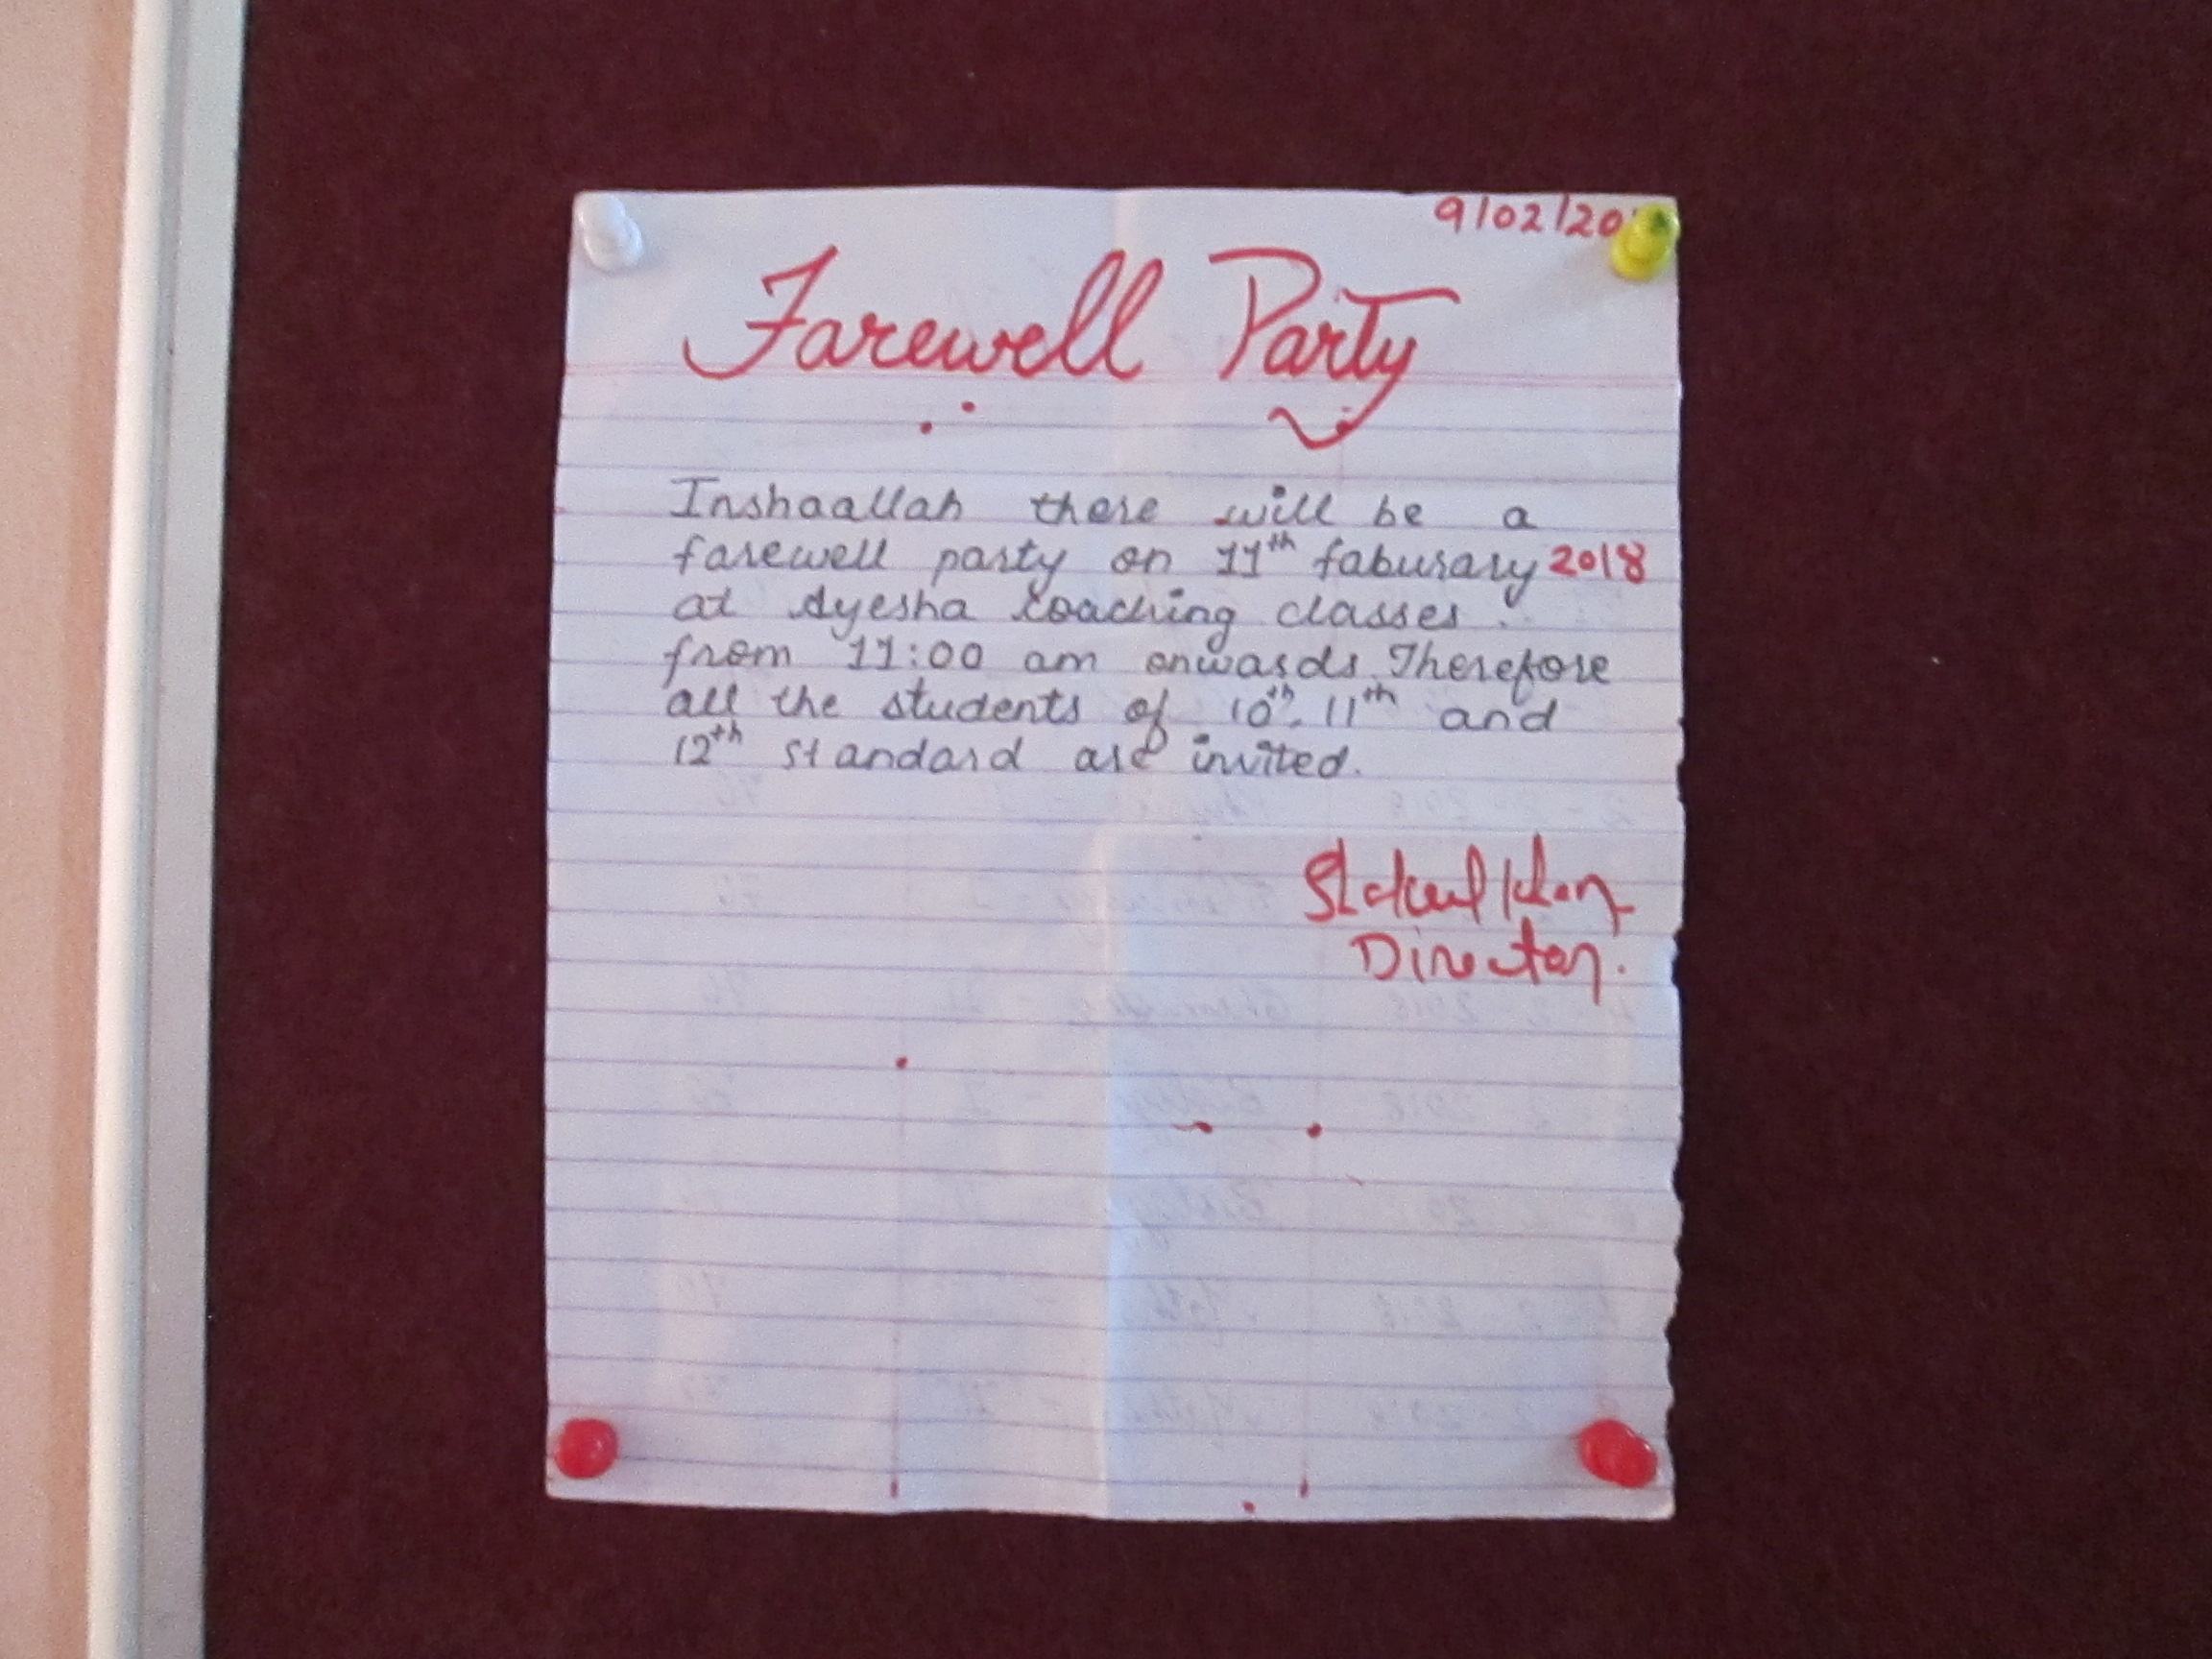 9/02/20
Farewell Party
Inshaallah there will be a
farewell party on 11th faburary 2018
at Ayesha coaching classes.
from 11:00 am onwards. Therefore
all the students of 10th, 11th and
12th standard are invited.
Shakeel Khan
Director.